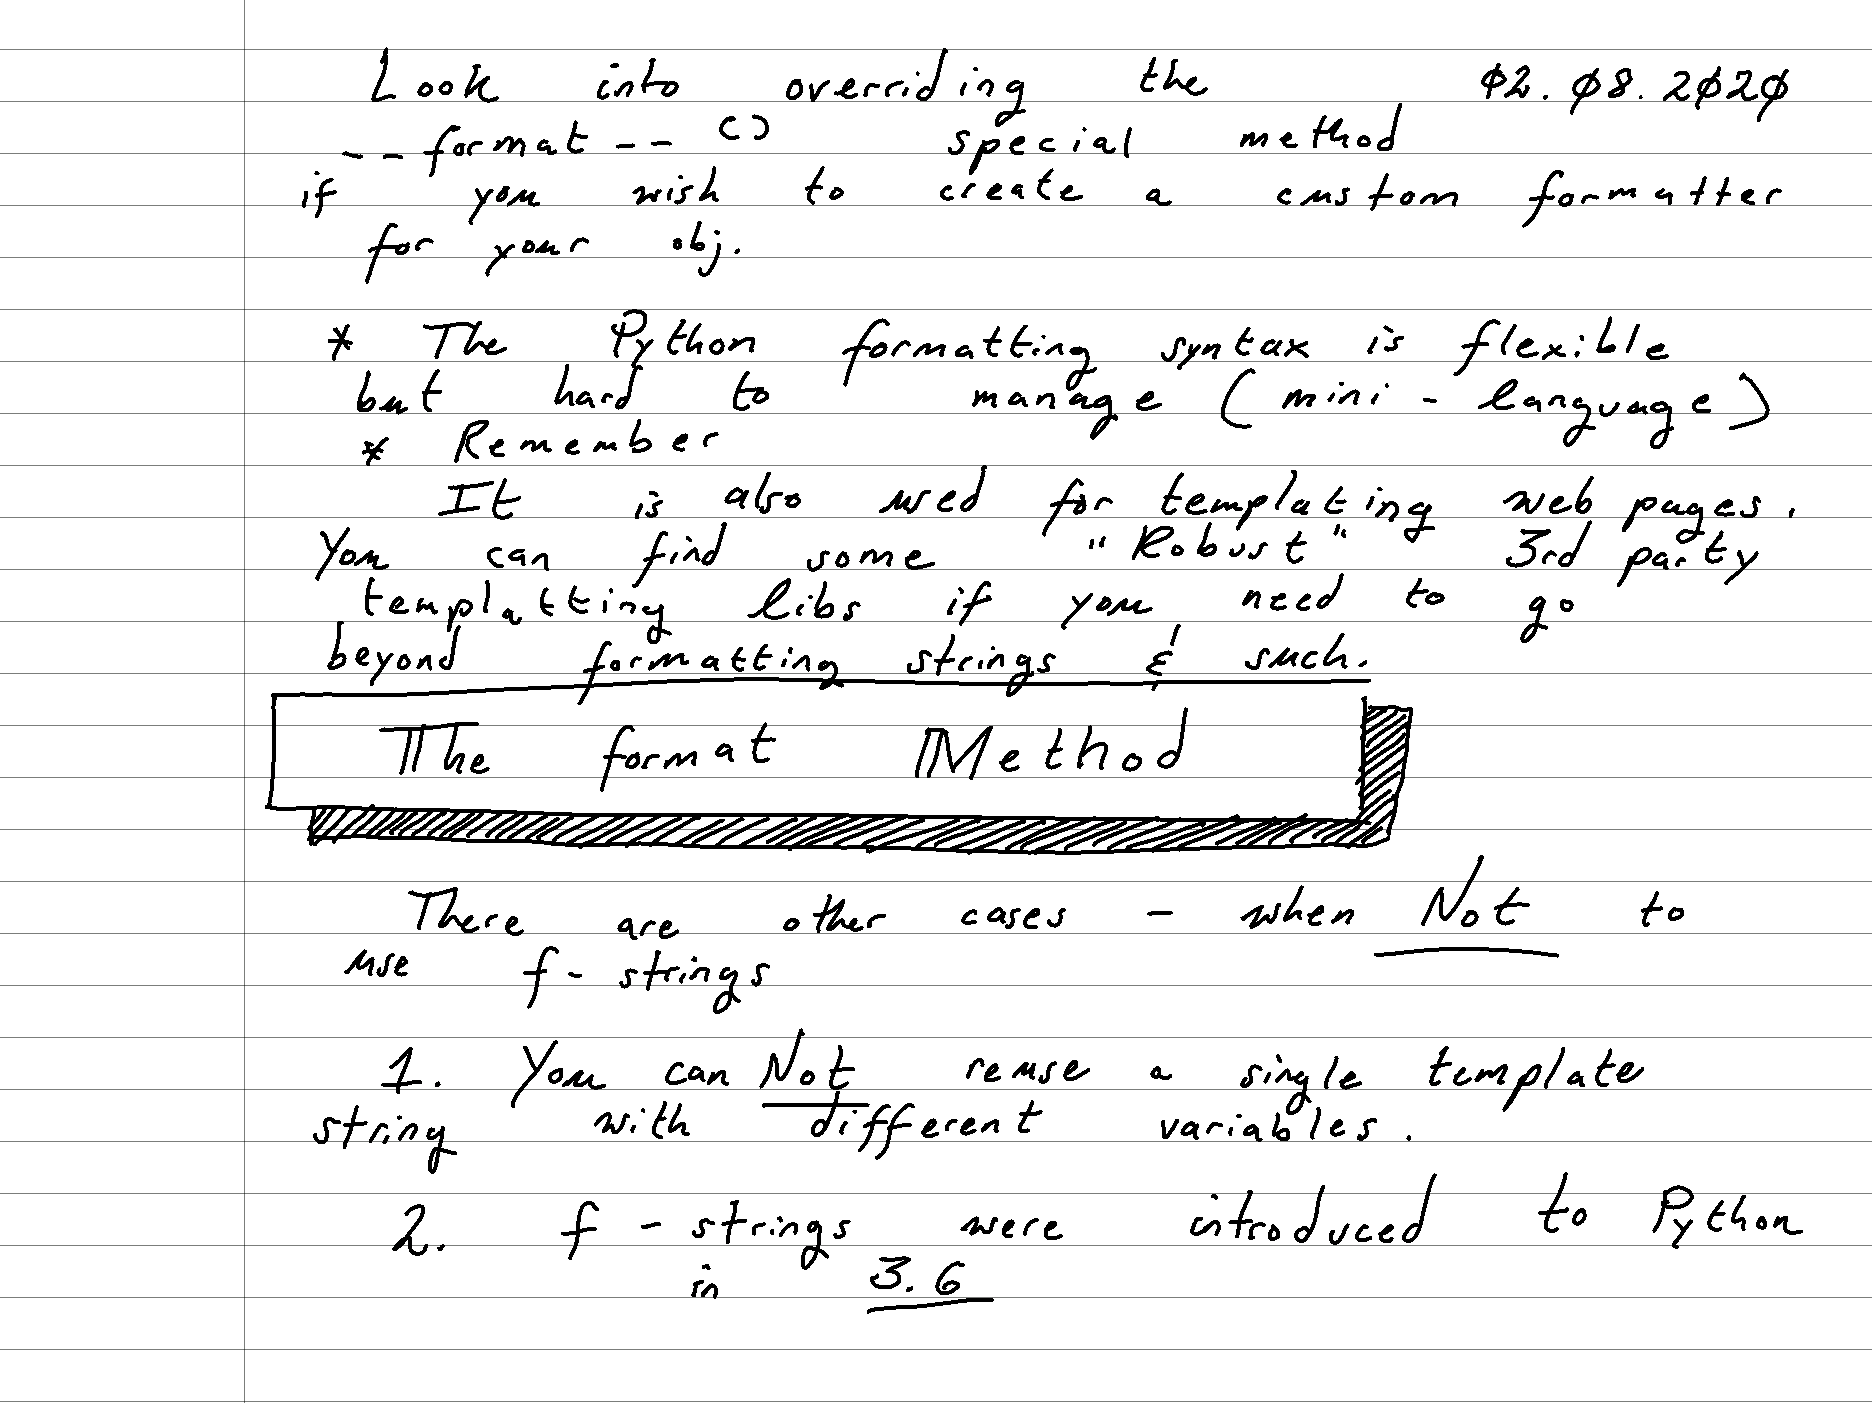 Look into overriding the 02.08.2020
__format__() special method
if you wish to create a custom formatter
for your obj.
* The Python formatting syntax is flexible
but hard to manage (mini - language)
* Remember
It is also used for templating web pages.
You can find some "Robust" 3rd party
templatting libs if you need to go
beyond formatting strings & such.
The format Method
There are other cases - when Not to
use f - strings
1. You can Not reuse a single template
string with different variables.
2. f - strings were introduced to Python
in 3.6